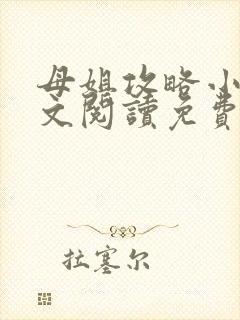 母姐攻略小
文閱讀免費
拉塞尔